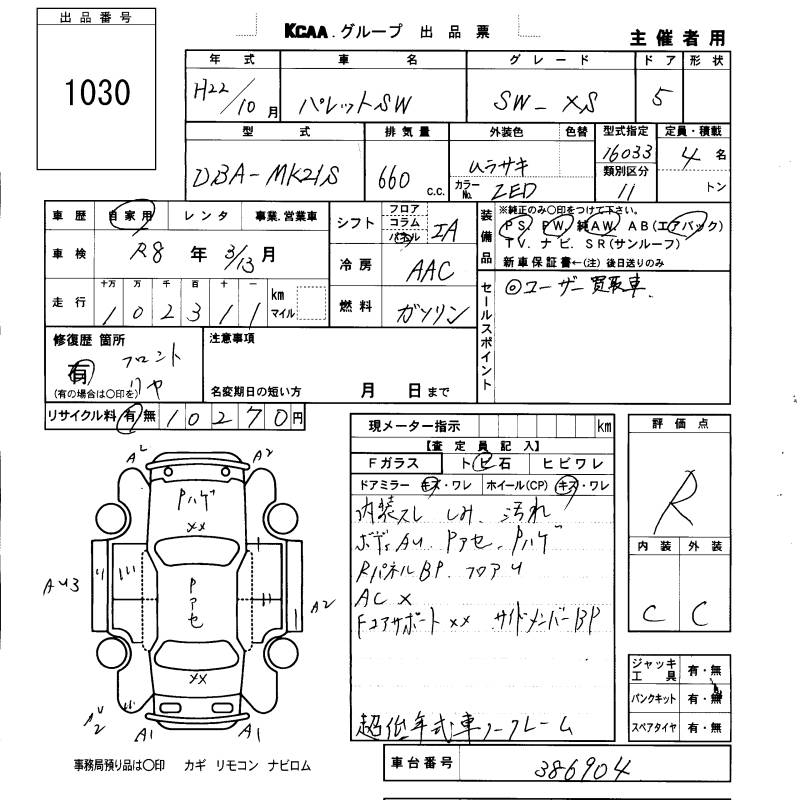 出品番号
1030
KCAA.グループ 出品票
主催者用
年式 車名 グレード ドア 形状
H22/10月 パレットSW SW-XS 5
型式 排気量 外装色 色替 型式指定 定員・積載
DBA-MK21S 660 c.c. ムラサキ 16033 4名
カラーNo. ZED 類別区分 11 トン
車歴 自家用 レンタ 事業.営業車
車検 R8年 3/13月
走行 十万 万 千 百 十 一
102311 km マイル
シフト フロア コラム パネル IA
冷房 AAC
燃料 ガソリン
装備品 ※純正のみ〇印をつけて下さい。
PS. PW. 純AW. AB(エアバック)
TV. ナビ. SR(サンルーフ)
新車保証書←(注) 後日送りのみ
セールスポイント
◎ユーザー買取車.
修復歴 箇所
有 フロント
リヤ
(有の場合は〇印を)
注意事項
名変期日の短い方 月 日まで
リサイクル料 有 無 10270円
現メーター指示 km
【査定員記入】
Fガラス トビ石 ヒビワレ
ドアミラー キズ・ワレ ホイール(CP) キズ・ワレ
内装スレ しみ. 汚れ
ボディAU Pアセ. Pハゲ
RパネルBP. フロアU
AC×
Fコアサポート×× サイドメンバーBP
超低年式車ノークレーム
評価点
R
内装 外装
C C
ジャッキ工具 有・無
パンクキット 有・無
スペアタイヤ 有・無
A2 A2
Pハゲ
××
AU3
Pアセ
A2
××
A1 A1
事務局預り品は〇印 カギ リモコン ナビロム
車台番号 386904